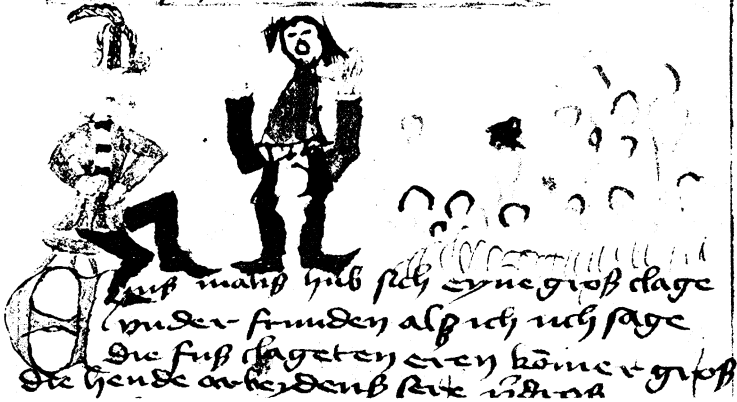 Eins mals hub sich eyne groß clage
vnder frunden alß ich uch sage
die fuß clageten eren komer groß
die hende arbeydenß sere v̄droß